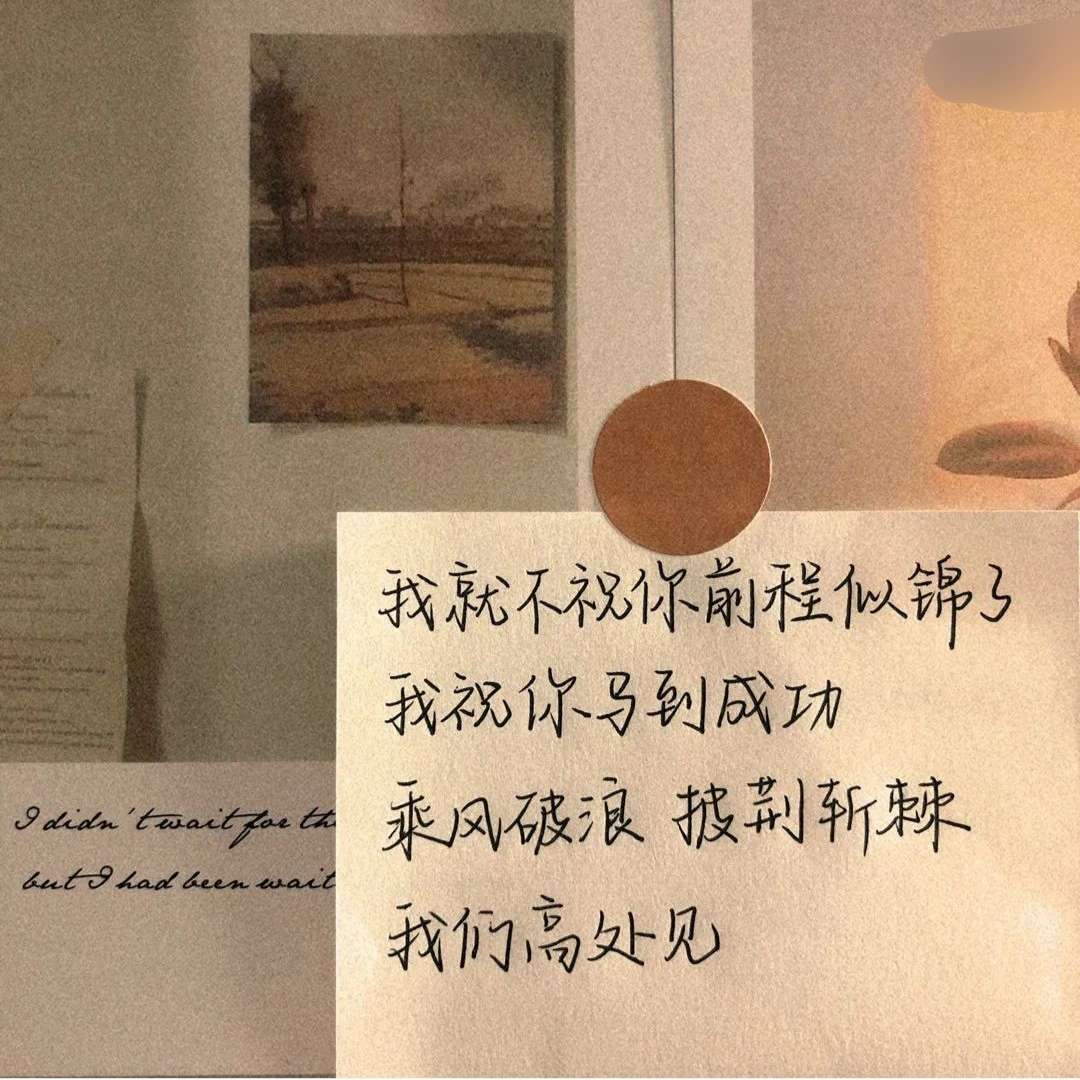 我就不祝你前程似锦了
我祝你马到成功
乘风破浪 披荆斩棘
我们高处见
I didn't wait for
but I had been